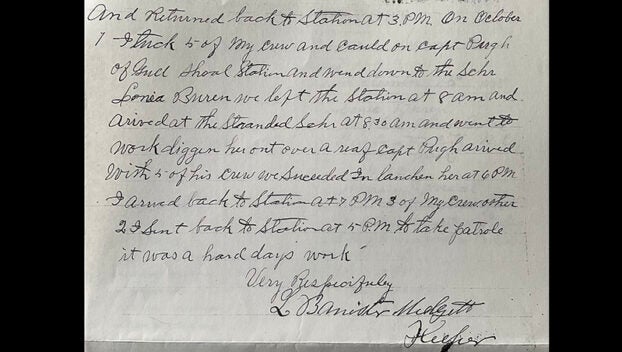 And Returned back to Station at 3, P.M. On October
1 I tuck 5 of My crew and cauld on Capt Pugh
of Gud Shoal Station and wend down to the Schr
Lonia Buren we left the Station at 8 am and
Arived at the Stranded Schr at 8 30 am and went to
work diggen her out over a reaf Capt Pugh arived
With 5 of his crew we Succeded In lanchen her at 6 PM
I arved back to Station at 7 PM 3 of My crew other
2 I Sent back to Station at 5 P.M. to take patrole
it was a hard days work
Very Respicifuley
L Banister Midgett
Keeper